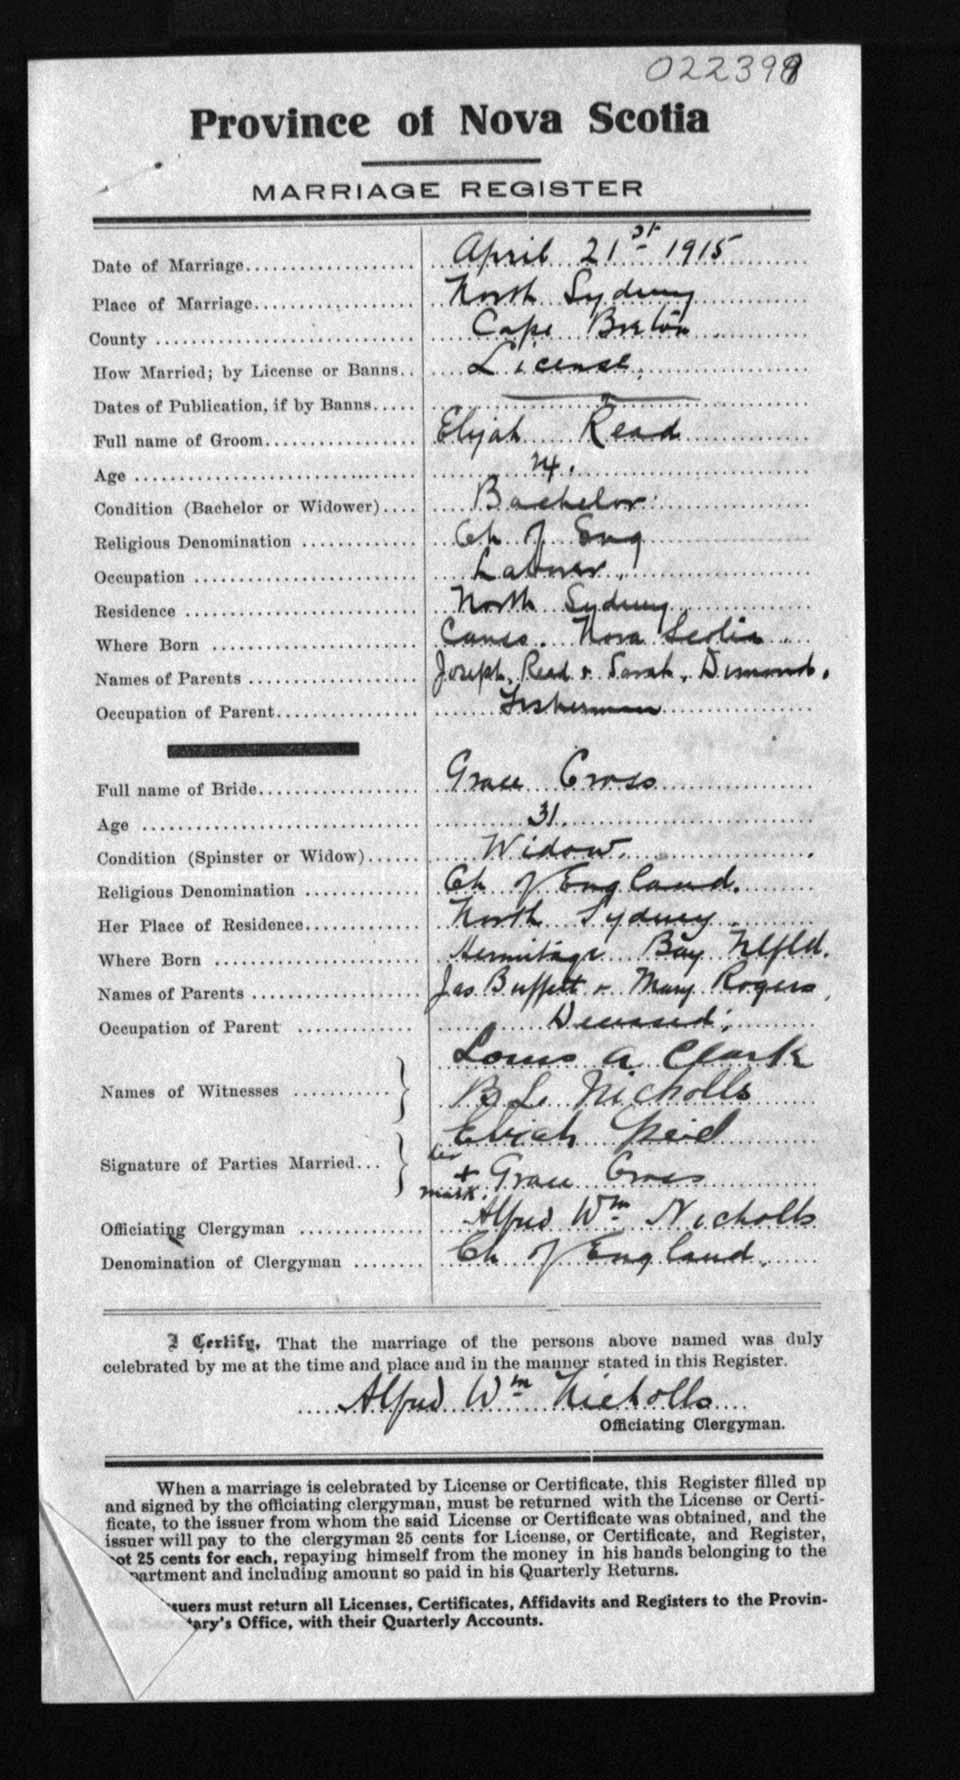 Province of Nova Scotia
MARRIAGE REGISTER
Date of Marriage April 21st 1915
Place of Marriage North Sydney
County Cape Breton
How Married; by License or Banns License.
Dates of Publication, if by Banns
Full name of Groom Elijah Read
Age 24.
Condition (Bachelor or Widower) Bachelor
Religious Denomination Ch of Eng
Occupation Laborer
Residence North Sydney
Where Born Canso. Nova Scotia
Names of Parents Joseph Read & Sarah Dimond.
Occupation of Parent Fisherman
Full name of Bride Grace Cross
Age 31.
Condition (Spinster or Widow) Widow.
Religious Denomination Ch of England.
Her Place of Residence North Sydney
Where Born Hermitage Bay Nfld.
Names of Parents Jas Buffett & Mary Rogers,
Occupation of Parent Deceased.
Louis A Clark
Names of Witnesses
B L Nicholls
Elijah Reid
Signature of Parties Married
her + mark. Grace Cross
Officiating Clergyman Alfred Wm Nicholls
Denomination of Clergyman Ch of England.
I Certify, That the marriage of the persons above named was duly
celebrated by me at the time and place and in the manner stated in this Register.
Alfred Wm Nicholls
Officiating Clergyman.
When a marriage is celebrated by License or Certificate, this Register filled up
and signed by the officiating clergyman, must be returned with the License or Certi-
ficate, to the issuer from whom the said License or Certificate was obtained, and the
issuer will pay to the clergyman 25 cents for License, or Certificate, and Register,
ot 25 cents for each, repaying himself from the money in his hands belonging to the
partment and including amount so paid in his Quarterly Returns.
suers must return all Licenses, Certificates, Affidavits and Registers to the Provin-
tary's Office, with their Quarterly Accounts.